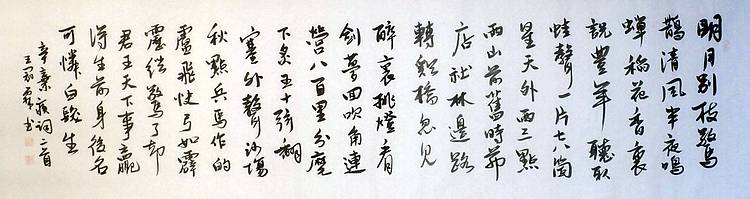 明月别枝驚
鵲清風半夜鳴
蟬稻花香裏
說豐年聽取
蛙聲一片七八箇
星天外兩三點
雨山前舊時茆
店社林邊路
轉谿橋忽見
醉裏挑燈看
劍夢回吹角連
營八百里分麾
下炙五十弦翻
塞外聲沙場
秋點兵馬作的
盧飛快弓如霹
靂弦驚了却
君王天下事贏
得生前身後名
可憐白髮生
辛棄疾詞二首